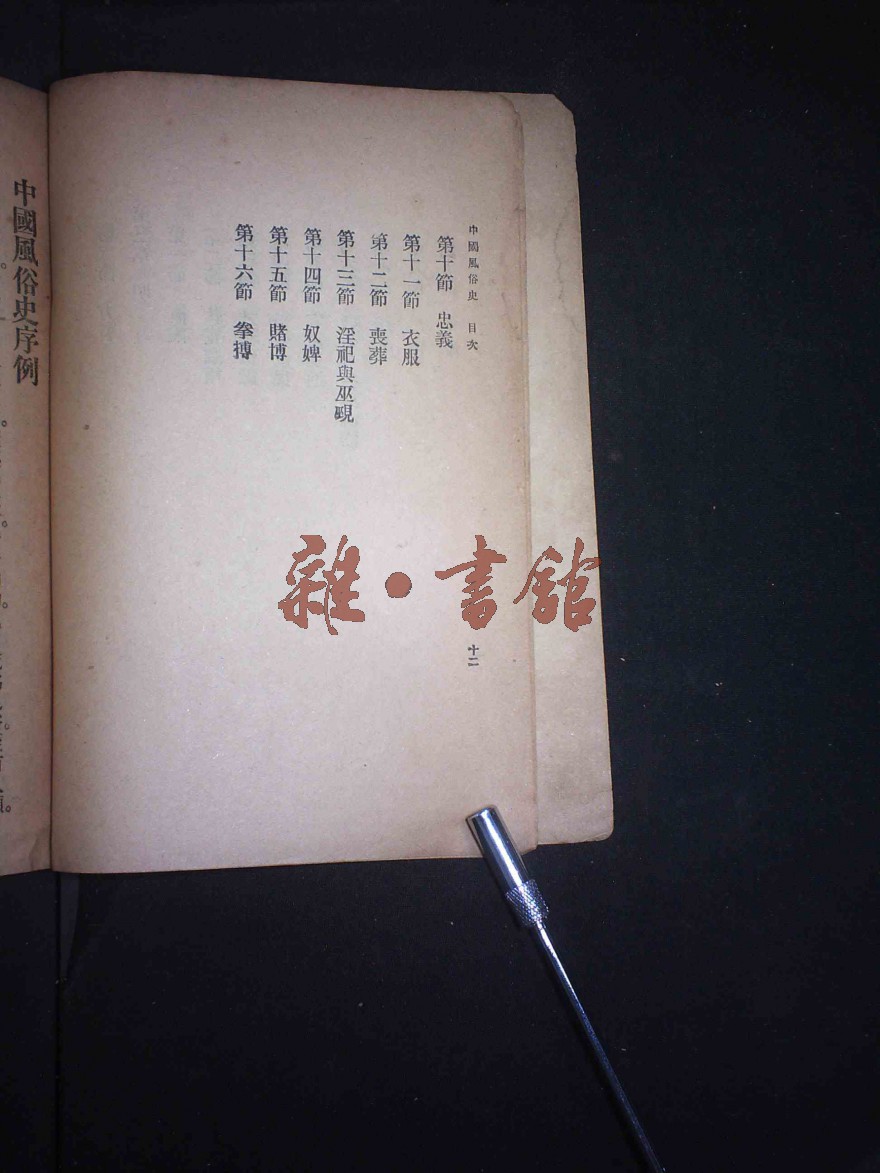 中國風俗史 目次
第十節 忠義
第十一節 衣服
第十二節 喪葬
第十三節 淫祀與巫覡
第十四節 奴婢
第十五節 賭博
第十六節 拳搏
十二
中國風俗史序例
雜·書館